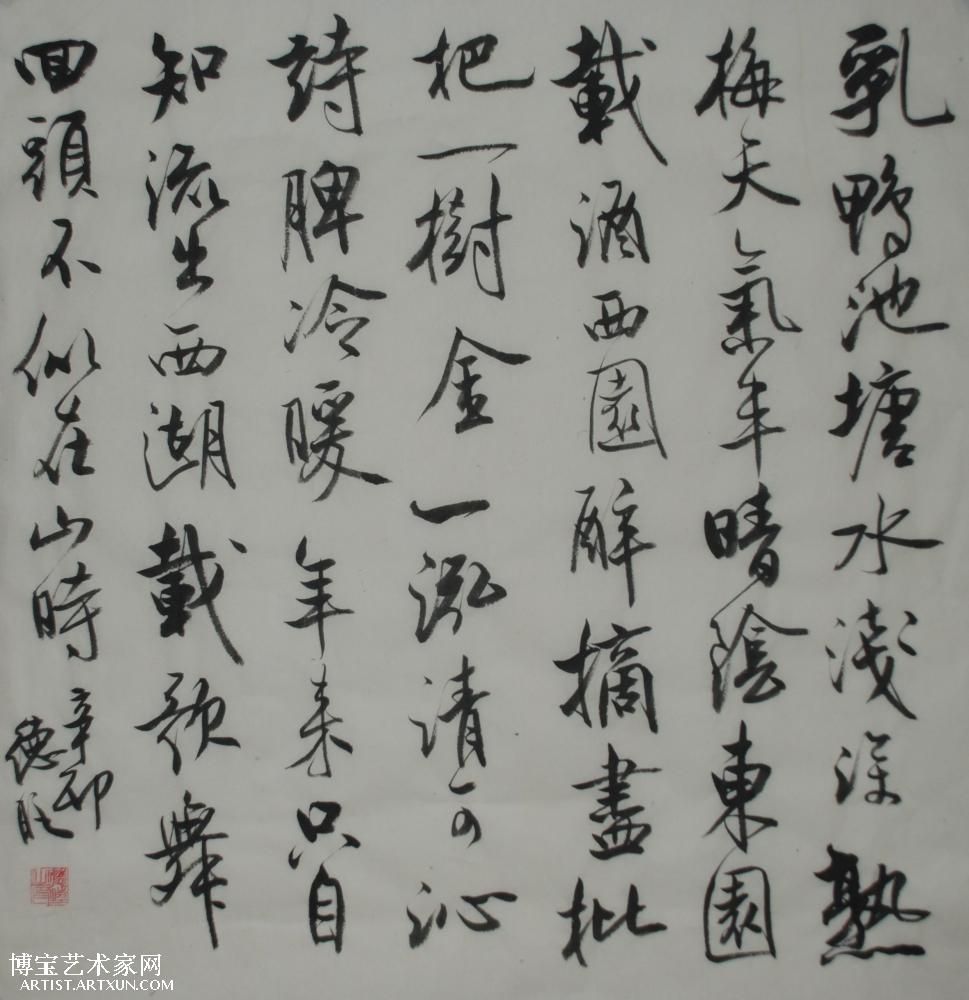 乳鴨池塘水淺深熟
梅天氣半晴陰東園
載酒西園醉摘盡枇
杷一樹金一泓清可沁
詩脾冷暖年來只自
知流出西湖載歌舞
回頭不似在山時辛卯
德
博宝艺术家网
ARTIST.ARTXUN.COM